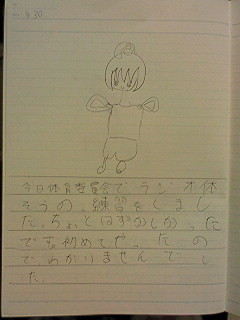 今日体育委員会で、ラジオ体
そうの、練習をしまし
た。ちょとはずかしか、た
でも初めてだ、たの
で、わかりませんでし
た。